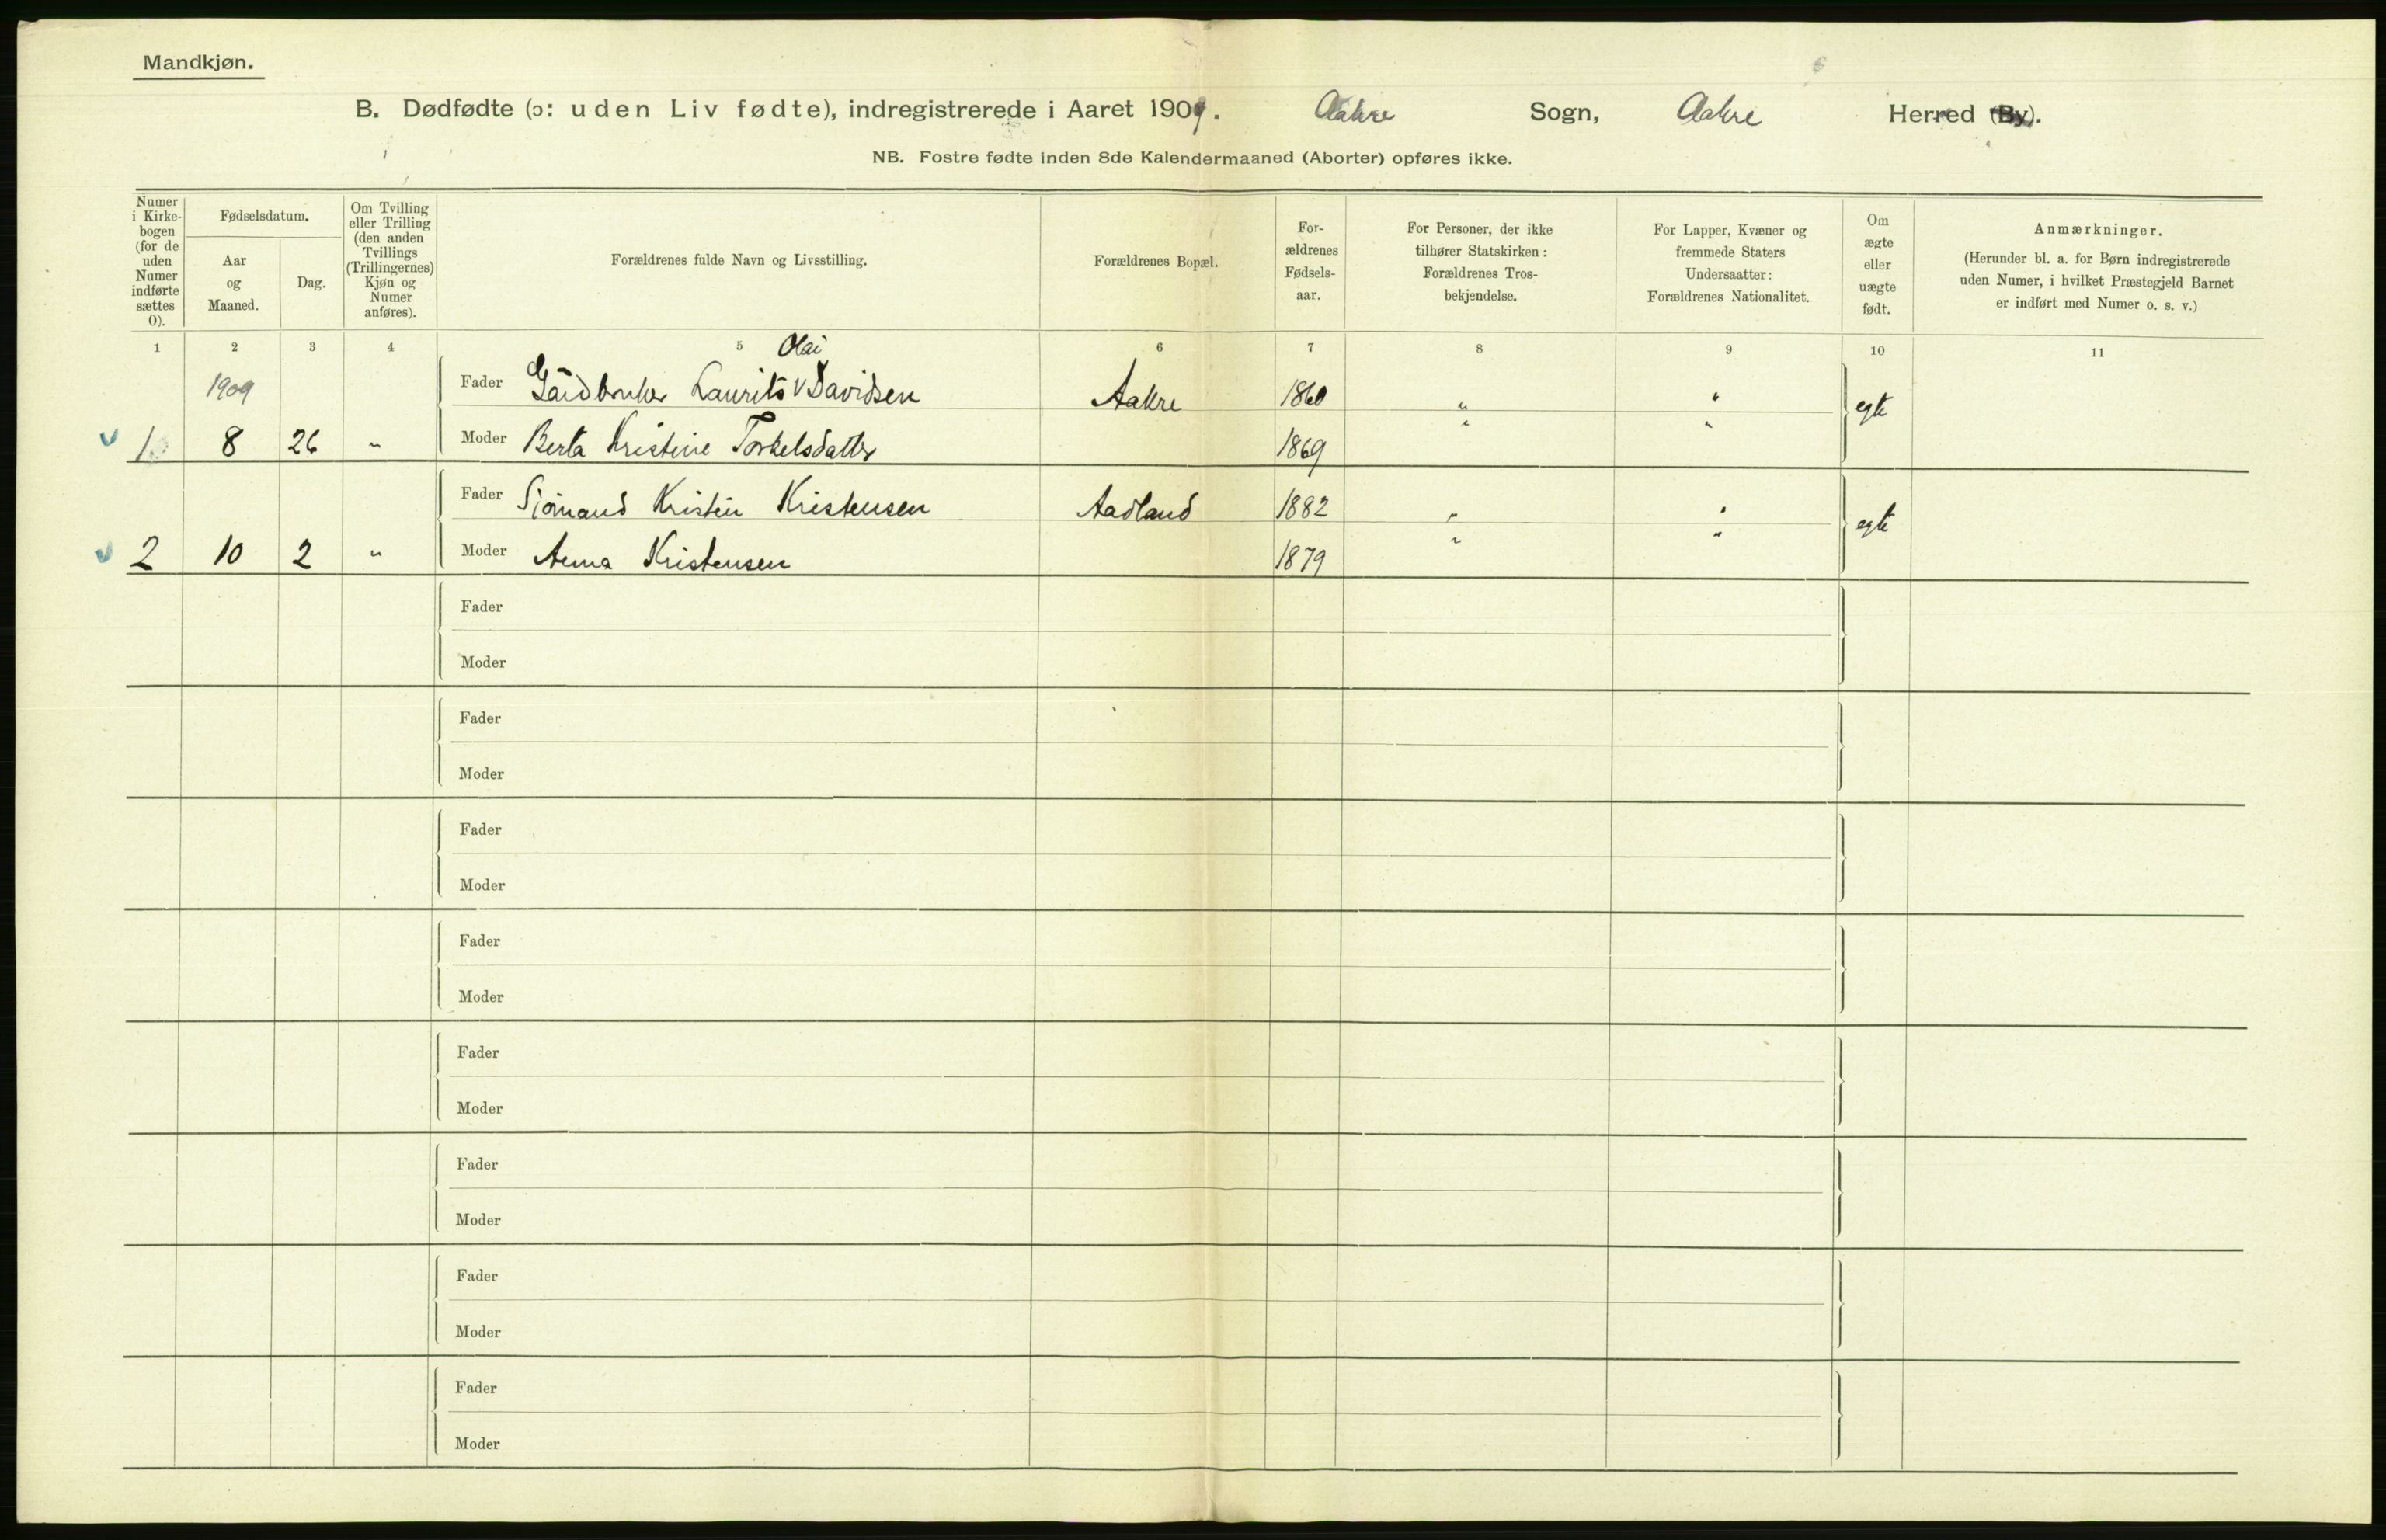 Mandkjøn.
B. Dødfødte (ɔ: uden Liv fødte), indregistrerede i Aaret 1909. Aakre Sogn, Aakre Herred (By).
NB. Fostre fødte inden 8de Kalendermaaned (Aborter) opføres ikke.
Numer i Kirke-bogen (for de uden Numer indførte sættes 0).
Fødselsdatum.
Aar og Maaned.
Dag.
Om Tvilling eller Trilling (den anden Tvillings (Trillingernes) Kjøn og Numer anføres).
Forældrenes fulde Navn og Livsstilling.
Forældrenes Bopæl.
For-ældrenes Fødsels-aar.
For Personer, der ikke tilhører Statskirken: Forældrenes Tros-bekjendelse.
For Lapper, Kvæner og fremmede Staters Undersaatter: Forældrenes Nationalitet.
Om ægte eller uægte født.
Anmærkninger.
(Herunder bl. a. for Børn indregistrerede uden Numer, i hvilket Præstegjeld Barnet er indført med Numer o. s. v.)
1 2 3 4 5 6 7 8 9 10 11
Olai
1909 Fader Gårdbruker Laurits V Davidsen Aakre 1860 " " egte
1 8 26 " Moder Berta Kristine Torkelsdatter 1869 " "
Fader Sjömand Kristin Kristensen Aadland 1882 " " egte
2 10 2 " Moder Anna Kristensen 1879 " "
Fader
Moder
Fader
Moder
Fader
Moder
Fader
Moder
Fader
Moder
Fader
Moder
Fader
Moder
Fader
Moder